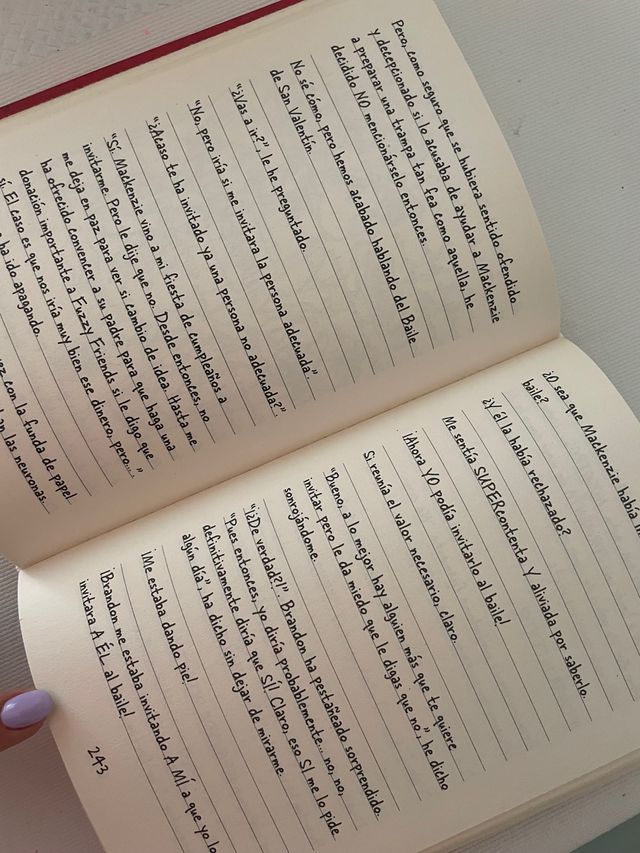 Pero, como seguro que se hubiera sentido ofendido
y decepcionado si lo acusaba de ayudar a Mackenzie
a preparar una trampa tan fea como aquella, he
decidido NO mencionárselo entonces.
No sé cómo, pero hemos acabado hablando del Baile
de San Valentín.
“¿Vas a ir?”, le he preguntado.
“No, pero iría si me invitara la persona adecuada”.
“¿Acaso te ha invitado ya una persona no adecuada?”
“Sí. Mackenzie vino a mi fiesta de cumpleaños a
invitarme. Pero le dije que no. Desde entonces, no
me deja en paz para ver si cambio de idea. Hasta me
ha ofrecido convencer a su padre para que haga una
donación importante a Fuzzy Friends si le digo que
sí. El caso es que nos iría muy bien ese dinero, pero...”
ha ido apagando.
con la funda de papel
las neuronas.
¿O sea que Mackenzie había
baile?
¿Y él la había rechazado?
Me sentía SUPERcontenta Y aliviada por saberlo.
¡Ahora YO podía invitarlo al baile!
Si reunía el valor necesario, claro.
“Bueno, a lo mejor hay alguien más que te quiere
invitar pero le da miedo que le digas que no”, he dicho
sonrojándome.
“¡¿De verdad?!” Brandon ha pestañeado sorprendido.
“Pues entonces, yo diría probablemente... no, no,
definitivamente diría que SÍ! Claro, eso SI me lo pide
algún día”, ha dicho sin dejar de mirarme.
¡Me estaba dando pie!
¡Brandon me estaba invitando A MÍ a que yo lo
invitara A ÉL al baile!
243